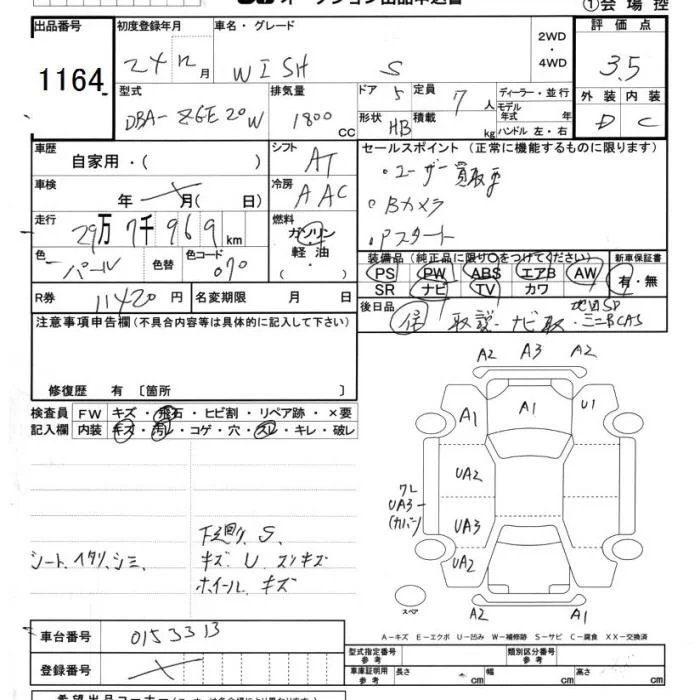 ①会場控
出品番号
1164
初度登録年月
24 12月
車名・グレード
WISH S
2WD
・
4WD
評価点
3.5
型式
DBA-ZGE20W
排気量
1800 CC
ドア 5
定員 7人
形状 HB
積載 kg
ディーラー・並行
モデル年式 年
ハンドル 左・右
外装 内装
D C
車歴
自家用・( )
シフト
AT
セールスポイント(正常に機能するものに限ります)
・ユーザー買取車
・Bカメラ
・Pスタート
車検
年 月( 日)
冷房
AAC
走行
29万7千969km
燃料
ガソリン
軽油
・( )・
色
パール
色替
色コード
070
装備品(純正品に限り〇をつけてください)
PS PW ABS エアB AW
SR ナビ TV カワ
新車保証書
有・無
R券 11420円
名変期限 月 日
後日品
保 取説 ナビ取 地図SD・ミニBCAS
注意事項申告欄(不具合内容等は具体的に記入して下さい)
修復歴 有〔箇所 〕
検査員記入欄
FW キズ・飛石・ヒビ割・リペア跡・×要
内装 キズ・汚レ・コゲ・穴・スレ・キレ・破レ
シート、イタリ、シミ、
下廻り、S、
キズ、U、スリキズ
ホイール、キズ
A2 A3 A2
A1 A1 U1
UA2
ワレ
UA3
(カバー)
UA3
UA2
スペア
A2 A1
A-キズ E-エクボ U-凹み W-補修跡 S-サビ C-腐食 XX-交換済
車台番号
0153313
登録番号
型式指定番号
参考
類別区分番号
参考
車庫証明用
参考
長さ cm 幅 cm 高さ cm